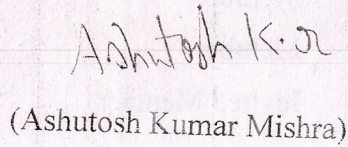 Ashutosh K.
(Ashutosh Kumar Mishra)